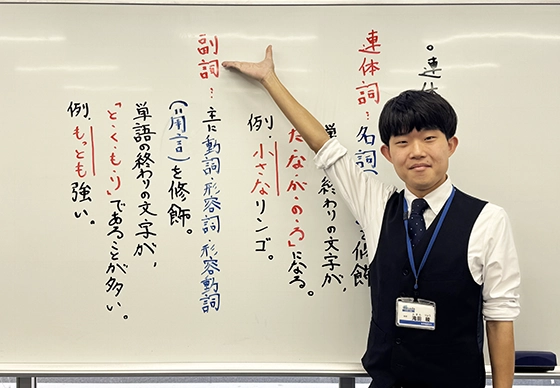 連体
連体詞：名詞 修飾
終わりの文字が、
た・な・が・の・る」になる。
例．小さなリンゴ。
副詞：主に動詞 形容詞 形容動詞
(用言)を修飾。
単語の終わりの文字が、
「と・く・も・り」であることが多い。
例．もっとも強い。